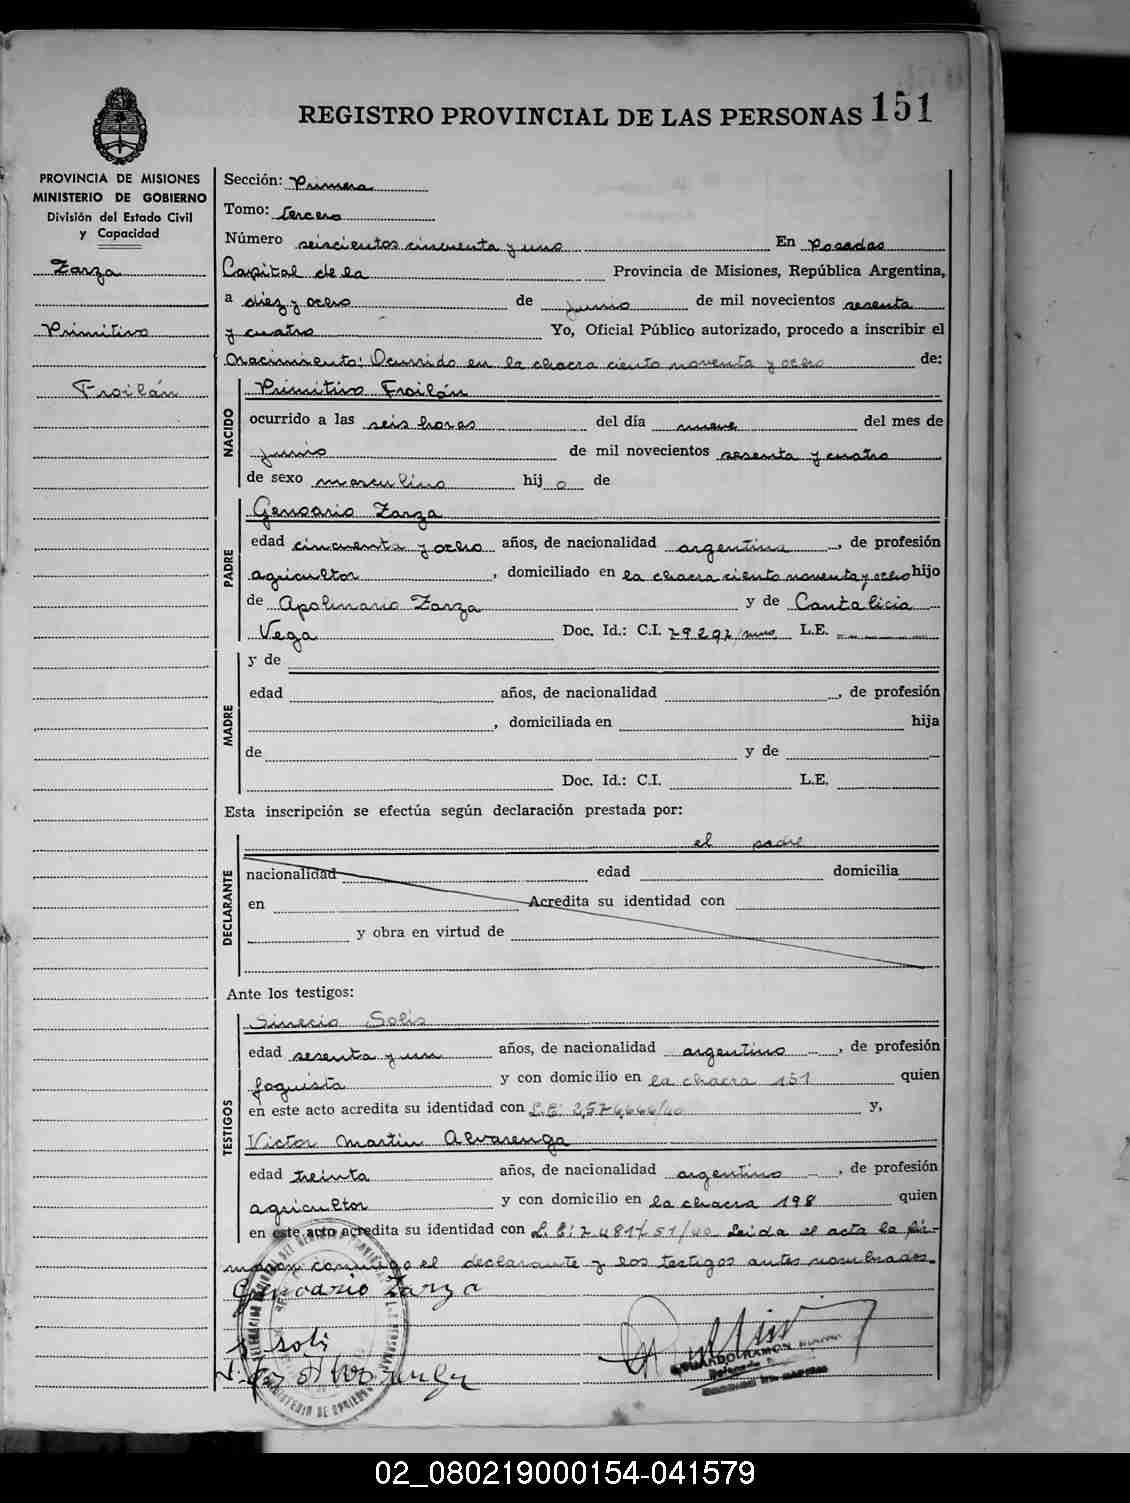 REGISTRO PROVINCIAL DE LAS PERSONAS 151
PROVINCIA DE MISIONES
MINISTERIO DE GOBIERNO
División del Estado Civil
y Capacidad
Zarza
Primitivo
Froilán
Sección: Primera
Tomo: tercero
Número seiscientos cincuenta y uno En Posadas
Capital de la Provincia de Misiones, República Argentina,
a diez y ocho de junio de mil novecientos sesenta
y cuatro Yo, Oficial Público autorizado, procedo a inscribir el
nacimiento: Ocurrido en la chacra ciento noventa y ocho de:
NACIDO
Primitivo Froilán
ocurrido a las seis horas del día nueve del mes de
junio de mil novecientos sesenta y cuatro
de sexo masculino hijo de
PADRE
Genoario Zarza
edad cincuenta y ocho años, de nacionalidad argentina, de profesión
agricultor, domiciliado en la chacra ciento noventa y ocho hijo
de Apolinario Zarza y de Cantalicia
Vega Doc. Id.: C.I. L.E.
MADRE
y de
edad años, de nacionalidad , de profesión
, domiciliada en hija
de y de
Doc. Id.: C.I. L.E.
Esta inscripción se efectúa según declaración prestada por:
el padre
DECLARANTE
nacionalidad edad domicilia
en Acredita su identidad con
y obra en virtud de
Ante los testigos:
TESTIGOS
Sinecio Solis
edad sesenta y un años, de nacionalidad argentino, de profesión
foguista y con domicilio en la chacra 151 quien
en este acto acredita su identidad con L.E: y,
Victor Martin Alvarenga
edad treinta años, de nacionalidad argentino, de profesión
agricultor y con domicilio en la chacra 198 quien
en este acto acredita su identidad con L.E: Leida el acta la fir-
maron conmigo el declarante y los testigos antes nombrados.
Genoario Zarza
S. Solis
02_080219000154-041579